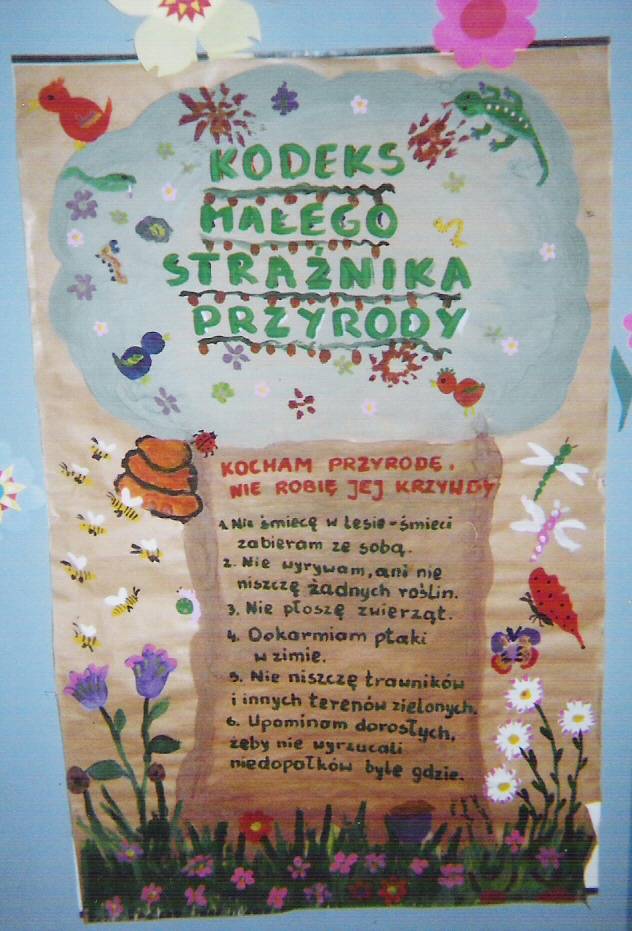 KODEKS
MAŁEGO
STRAŻNIKA
PRZYRODY
KOCHAM PRZYRODĘ,
NIE ROBIĘ JEJ KRZYWDY
1. Nie śmiecę w lesie - śmieci
zabieram ze sobą.
2. Nie wyrywam, ani nie
niszczę żadnych roślin.
3. Nie płoszę zwierząt.
4. Dokarmiam ptaki
w zimie.
5. Nie niszczę trawników
i innych terenów zielonych.
6. Upominam dorosłych,
żeby nie wyrzucali
niedopałków byle gdzie.